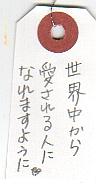 世界中から
愛される人に
なれますように。